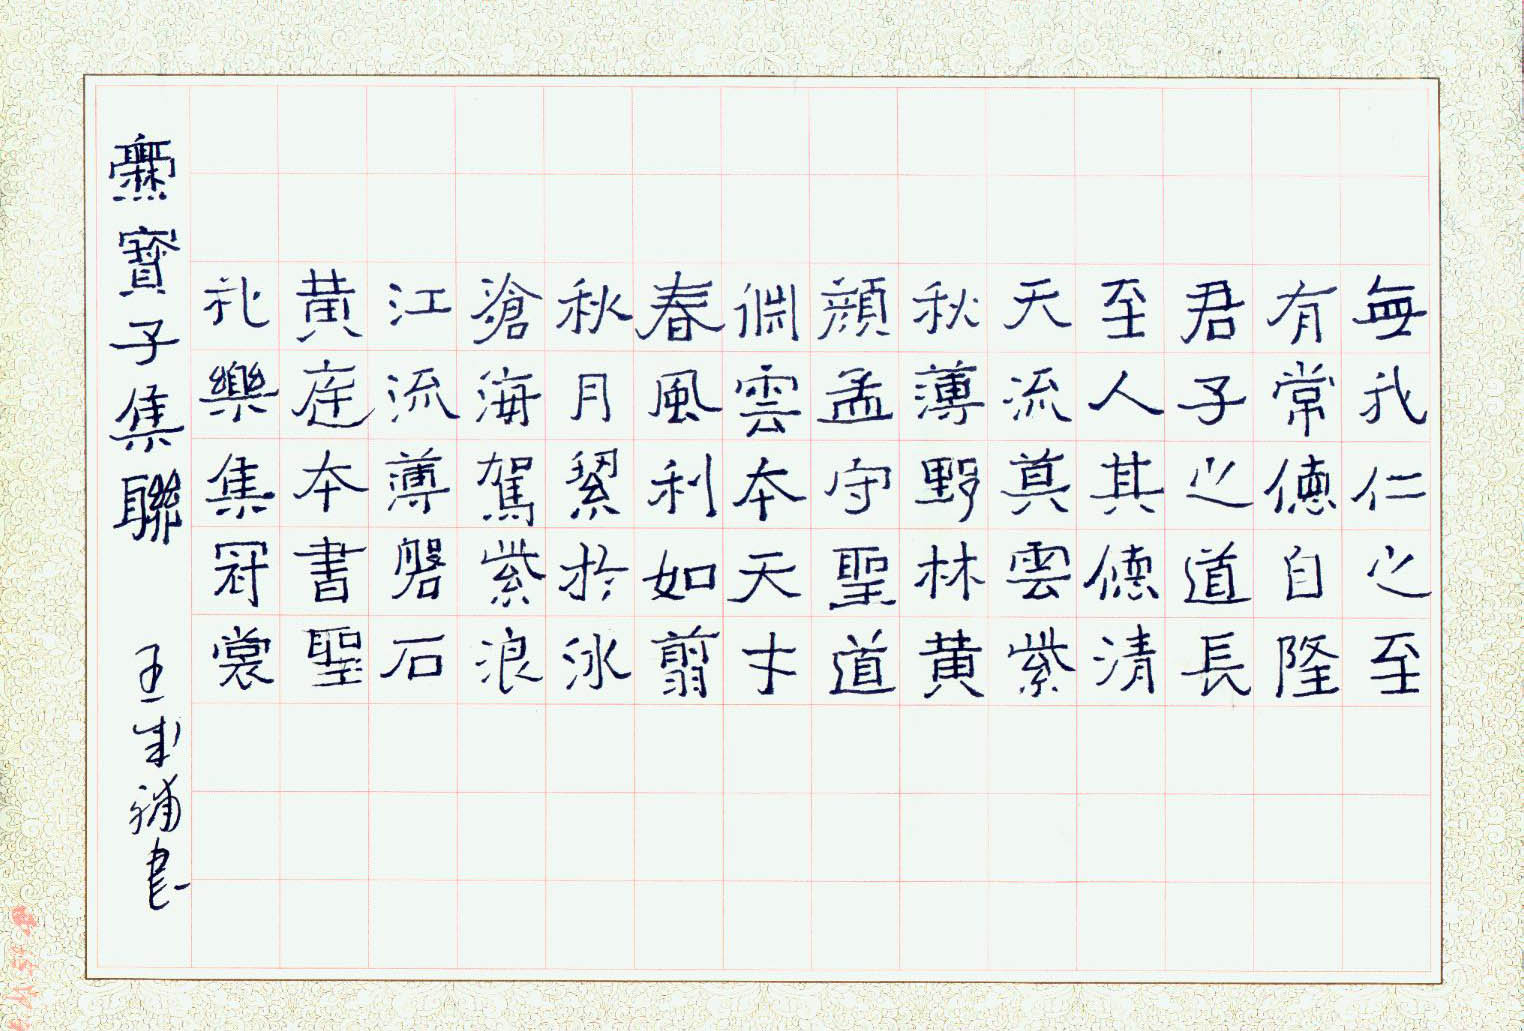 無我仁之至
有常德自隆
君子之道長
至人其德清
天流莫雲紫
秋薄野林黃
顏孟守聖道
淵雲本天才
春風利如翦
秋月絜於冰
滄海駕紫浪
江流薄磐石
黃庭本書聖
礼樂集冠裳
爨寶子集聯
王成補書